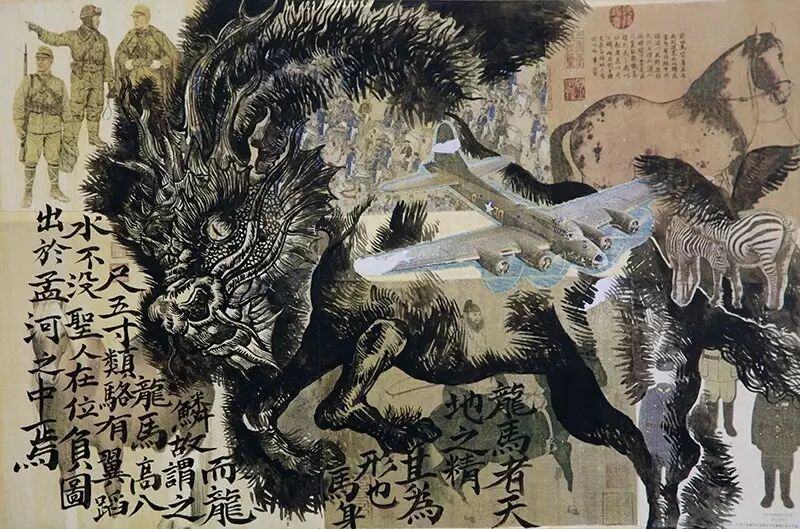 龍馬者天
地之精
其為
形也
馬身
而龍
鱗故謂之
龍馬高八
尺五寸類駱有翼蹈
水不没聖人在位負圖
出於孟河之中焉